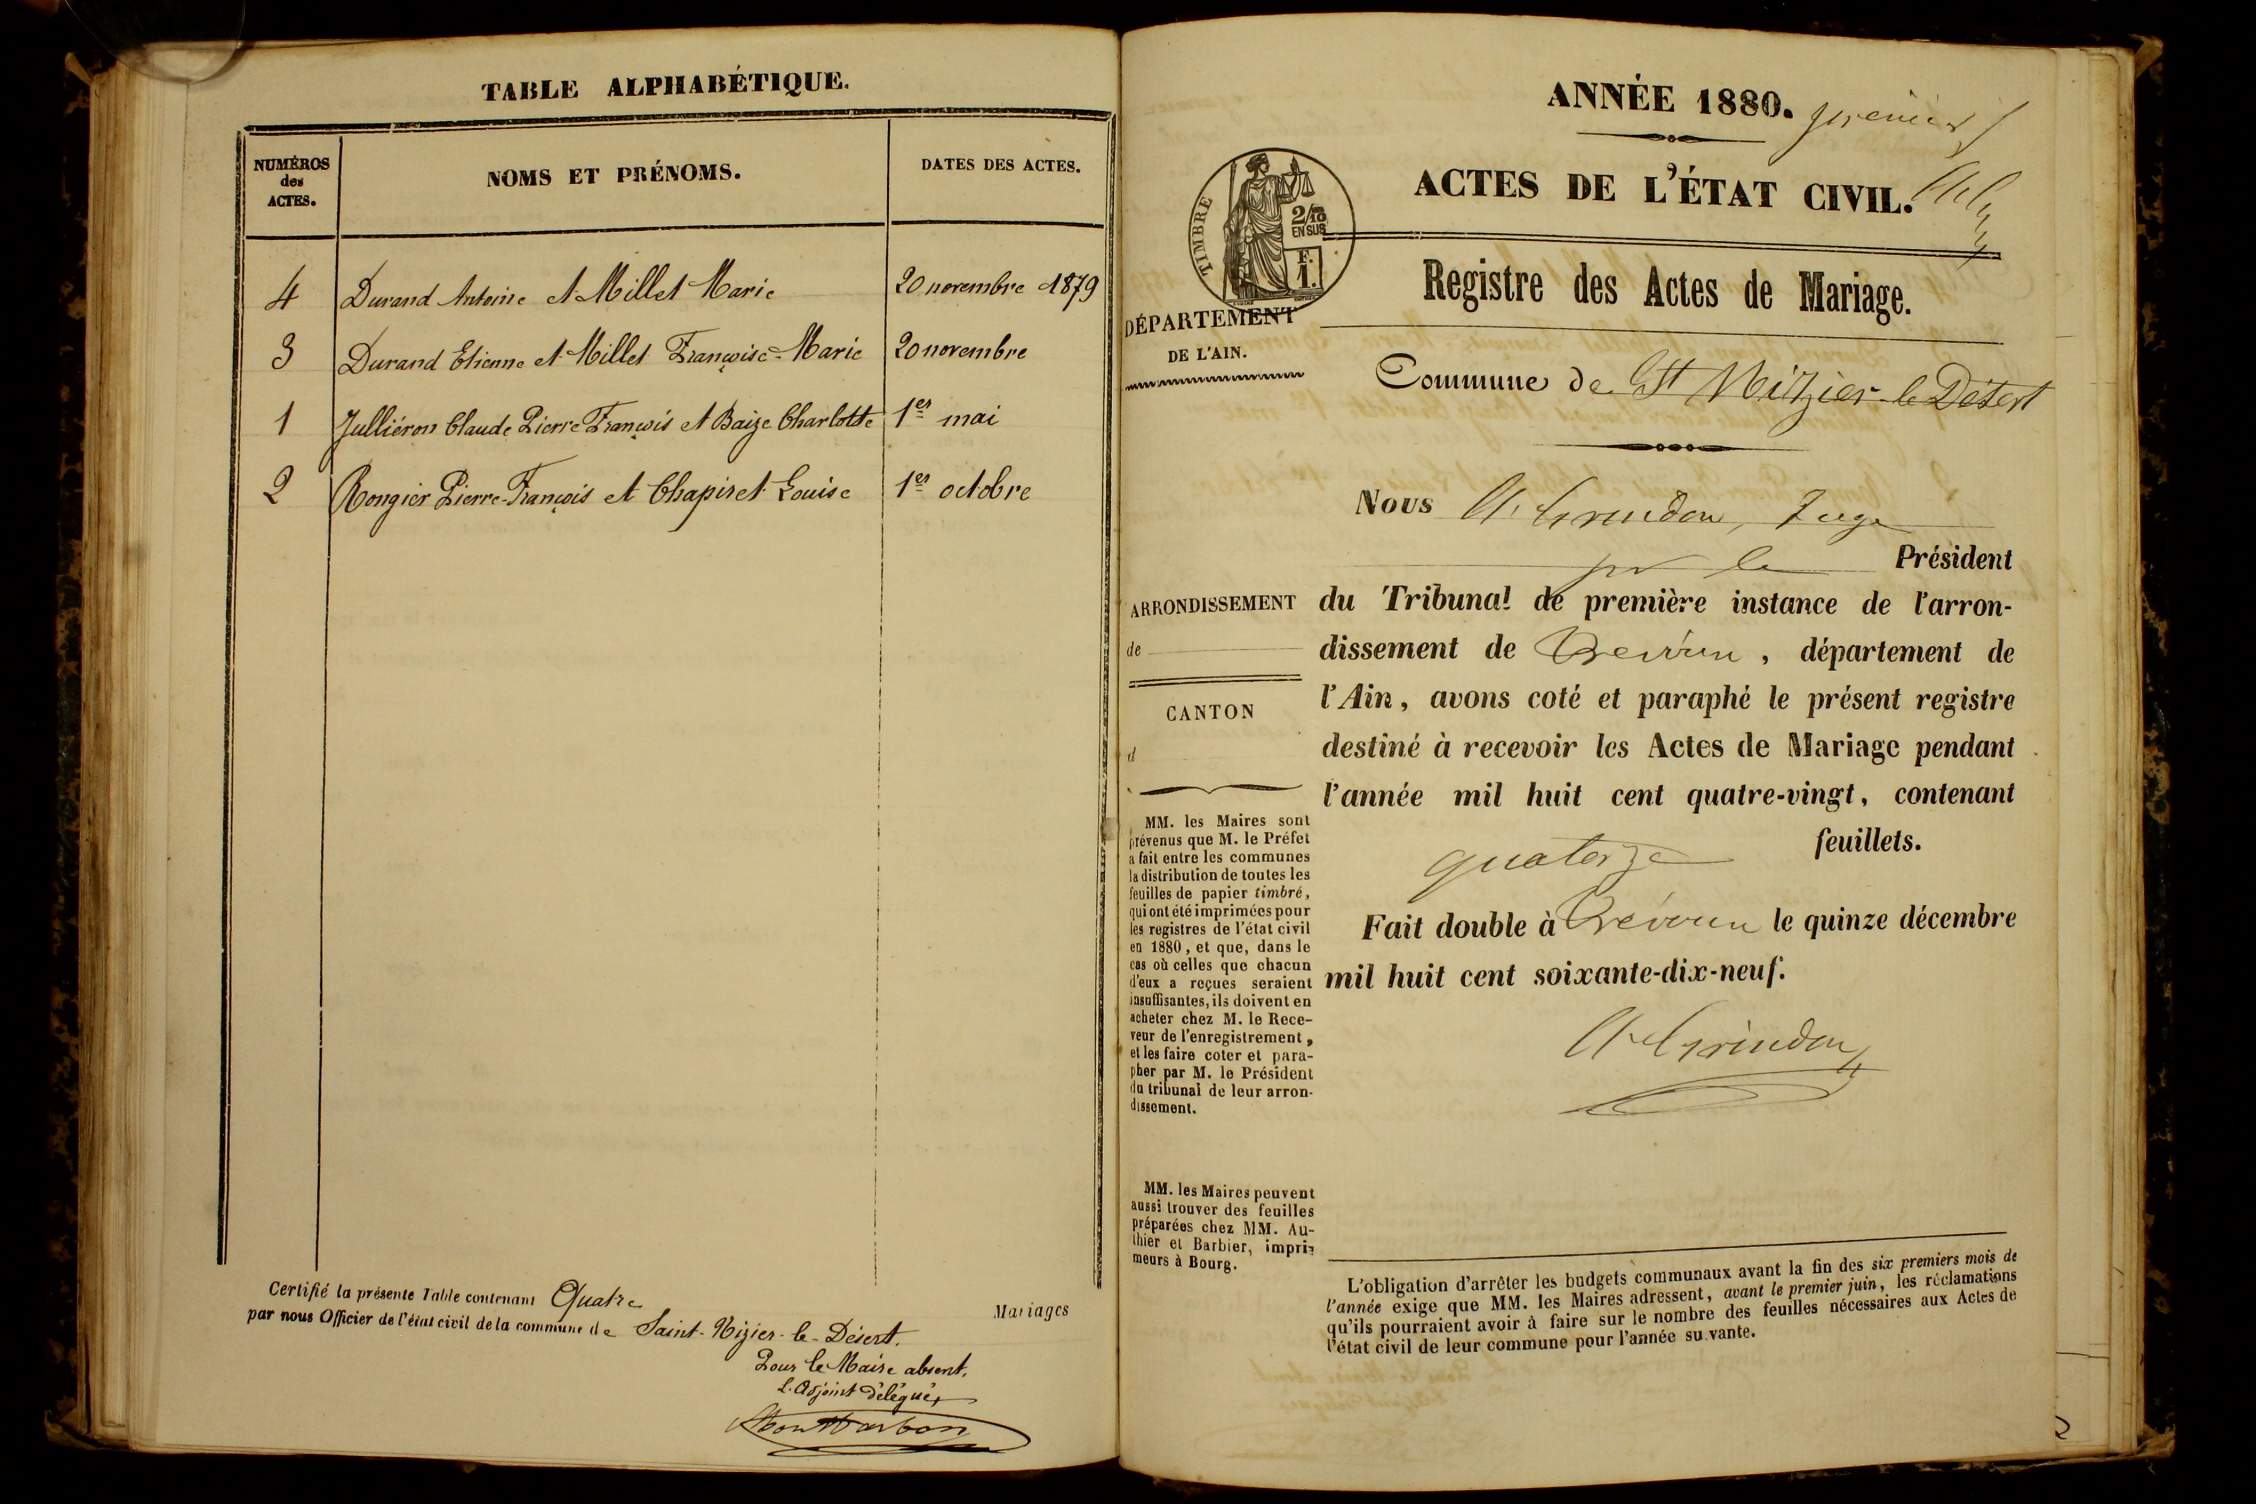 TABLE ALPHABÉTIQUE.
NUMÉROS
des
ACTES.
NOMS ET PRÉNOMS.
DATES DES ACTES.
4 Durand Antoine et Millet Marie 20 novembre 1879
3 Durand Etienne et Millet Françoise-Marie 20 novembre
1 Julliéron Claude Pierre François et Baize Charlotte 1er mai
2 Rongier Pierre-François et Chapiret Louise 1er octobre
Certifié la présente Table contenant Quatre Mariages
par nous Officier de l'état civil de la commune de Saint-Nizier-le-Désert.
Pour le Maire absent,
L'Adjoint délégué,
Montbarbon
ANNÉE 1880. premier
ACTES DE L'ÉTAT CIVIL.
TIMBRE
2/10
EN SUS
F.
1.
Registre des Actes de Mariage.
DÉPARTEMENT
DE L'AIN.
Commune de St Nizier-le-Désert
Nous A. Grindon, Juge
pr le Président
du Tribunal de première instance de l'arron-
dissement de Trévoux, département de
l'Ain, avons coté et paraphé le présent registre
destiné à recevoir les Actes de Mariage pendant
l'année mil huit cent quatre-vingt, contenant
quatorze feuillets.
Fait double à Trévoux le quinze décembre
mil huit cent soixante-dix-neuf.
A. Grindon
ARRONDISSEMENT
de
CANTON
d
MM. les Maires sont
prévenus que M. le Préfet
a fait entre les communes
la distribution de toutes les
feuilles de papier timbré,
qui ont été imprimées pour
les registres de l'état civil
en 1880, et que, dans le
cas où celles que chacun
d'eux a reçues seraient
insuffisantes, ils doivent en
acheter chez M. le Rece-
veur de l'enregistrement,
et les faire coter et para-
pher par M. le Président
du tribunal de leur arron-
dissement.
MM. les Maires peuvent
aussi trouver des feuilles
préparées chez MM. Au-
thier et Barbier, impri-
meurs à Bourg.
L'obligation d'arrêter les budgets communaux avant la fin des six premiers mois de
l'année exige que MM. les Maires adressent, avant le premier juin, les réclamations
qu'ils pourraient avoir à faire sur le nombre des feuilles nécessaires aux Actes de
l'état civil de leur commune pour l'année suivante.